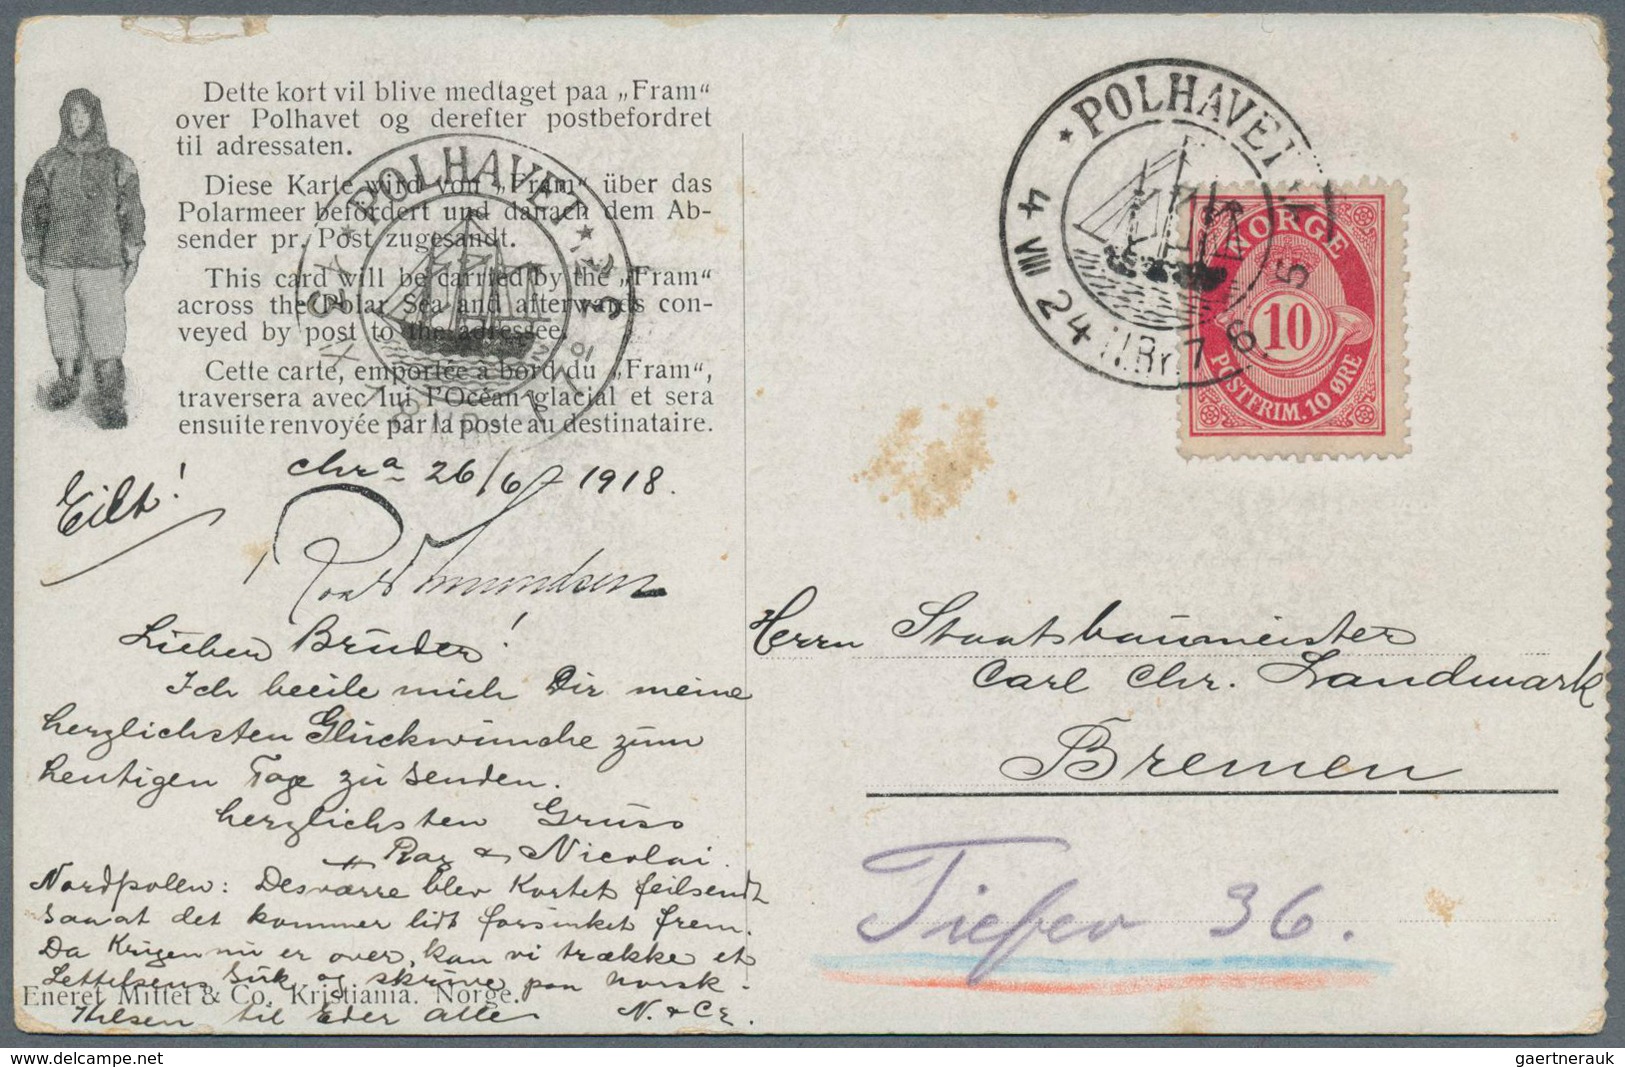 Dette kort vil blive medtaget paa „Fram“
over Polhavet og derefter postbefordret
til adressaten.
Diese Karte wird von „Fram“ über das
Polarmeer befördert und danach dem Ab-
sender pr. Post zugesandt.
This card will be carried by the „Fram“
across the Polar Sea and afterwards con-
veyed by post to the adressee.
Cette carte, emportée à bord du „Fram“,
traversera avec lui l'Océan glacial et sera
ensuite renvoyée par la poste au destinataire.
POLHAVET
Eilt!
Chra 26/6 1918.
Roald Amundsen
Lieben Bruder!
Ich beeile mich Dir meine
herzlichsten Glückwünche zum
heutigen Tage zu senden.
herzlichsten Gruss
Nicolai.
Nordpolen: Desværre blev Kortet feilsendt
saa at det kommer lidt forsinket frem.
Da Krigen nu er over, kan vi trække et
Lettelsens Suk og skrive paa norsk.
Hilsen til Eder alle
Eneret Mittet & Co. Kristiania. Norge.
POLHAVET
4 VIII 24 N.Br. 7 6. 5
NORGE
10
POSTFRIM. 10 ØRE
Herrn Staatsbaumeister
Carl Chr. Landmark
Bremen
Tiefer 36.
gaertnerauk @ delcampe.net